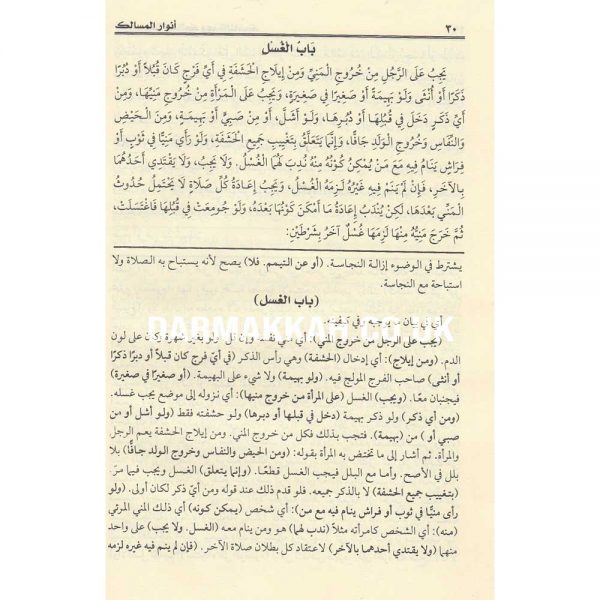 ٣٠ أنوار المسالك
بَابُ الْغُسْلِ
يَجِبُ عَلَى الرَّجُلِ مِنْ خُرُوجِ الْمَنِيِّ وَمِنْ إِيلَاجِ الْحَشَفَةِ فِي أَيِّ فَرْجٍ كَانَ قُبُلًا أَوْ دُبُرًا
ذَكَرًا أَوْ أُنْثَى وَلَوْ بَهِيمَةً أَوْ صَغِيرًا فِي صَغِيرَةٍ، وَيَجِبُ عَلَى الْمَرْأَةِ مِنْ خُرُوجِ مَنِيِّهَا، وَمِنْ
أَيِّ ذَكَرٍ دَخَلَ فِي قُبُلِهَا أَوْ دُبُرِهَا، وَلَوْ أَشَلَّ، أَوْ مِنْ صَبِيٍّ أَوْ بَهِيمَةٍ، وَمِنَ الْحَيْضِ
وَالنِّفَاسِ وَخُرُوجِ الْوَلَدِ جَافًّا، وَإِنَّمَا يَتَعَلَّقُ بِتَغْيِيبِ جَمِيعِ الْحَشَفَةِ، وَلَوْ رَأَى مَنِيًّا فِي ثَوْبٍ أَوْ
فِرَاشٍ يَنَامُ فِيهِ مَعَ مَنْ يُمْكِنُ كَوْنُهُ مِنْهُ نُدِبَ لَهُمَا الْغُسْلُ. وَلَا يَجِبُ، وَلَا يَقْتَدِي أَحَدُهُمَا
بِالْآخَرِ، فَإِنْ لَمْ يَنَمْ فِيهِ غَيْرُهُ لَزِمَهُ الْغُسْلُ، وَيَجِبُ إِعَادَةُ كُلِّ صَلَاةٍ لَا يَحْتَمِلُ حُدُوثُ
الْمَنِيِّ بَعْدَهَا، لَكِنْ يُنْدَبُ إِعَادَةُ مَا أَمْكَنَ كَوْنُهَا بَعْدَهُ، وَلَوْ جُومِعَتْ فِي قُبُلِهَا فَاغْتَسَلَتْ،
ثُمَّ خَرَجَ مَنِيُّهُ مِنْهَا لَزِمَهَا غُسْلٌ آخَرُ بِشَرْطَيْنِ:
يشترط في الوضوء إزالة النجاسة. (أو عن التيمم. فلا) يصح لأنه يستباح به الصلاة ولا
استباحة مع النجاسة.
(باب الغسل)
أي في بيان موجبه وفي كيفيته.
DARMAKKAH.CO.UK
(يجب على الرجل من خروج المني): أي مني نفسه وإن قل ولو بغير شهرة كان على لون
الدم. (ومن إيلاج): أي إدخال (الحشفة) وهي رأس الذكر (في أيّ فرج كان قبلًا أو دبرًا ذكرًا
أو أنثى) صاحب الفرج المولج فيه. (ولو بهيمة) ولا شيء على البهيمة. (أو صغيرًا في صغيرة)
فيجنبان معًا. (ويجب) الغسل (على المرأة من خروج منيها): أي نزوله إلى موضع يجب غسله.
(ومن أي ذكر) ولو ذكر بهيمة (دخل في قبلها أو دبرها) ولو حشفته فقط (ولو أشل أو من
صبي أو) من (بهيمة). فتجب بذلك فكل من خروج المني. ومن إيلاج الحشفة يعم الرجل
والمرأة. ثم أشار إلى ما تختص به المرأة بقوله: (ومن الحيض والنفاس وخروج الولد جافًّا) بلا
بلل في الأصح. وأما مع البلل فيجب الغسل قطعًا. (وإنما يتعلق) الغسل ويجب فيما مرّ.
(بتغييب جميع الحشفة) لا بالذكر جميعه. فلو قدم ذلك عند قوله ومن أي ذكر لكان أولى. (ولو
رأى منيًّا في ثوب أو فراش ينام فيه مع من): أي شخص (يمكن كونه) أي ذلك المني المرئي
(منه): أي الشخص كامرأته مثلًا (ندب لهما) هو ومن ينام معه (الغسل. ولا يجب) على واحد
منهما (ولا يقتدي أحدهما بالآخر) لاعتقاد كل بطلان صلاة الآخر. (فإن لم ينم فيه غيره لزمه